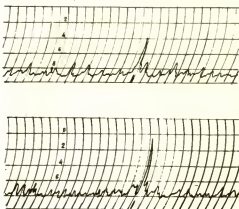 2
4
6
8
0
2
4
6